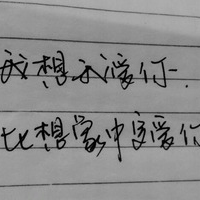 我想我爱你.
比想象中更爱你